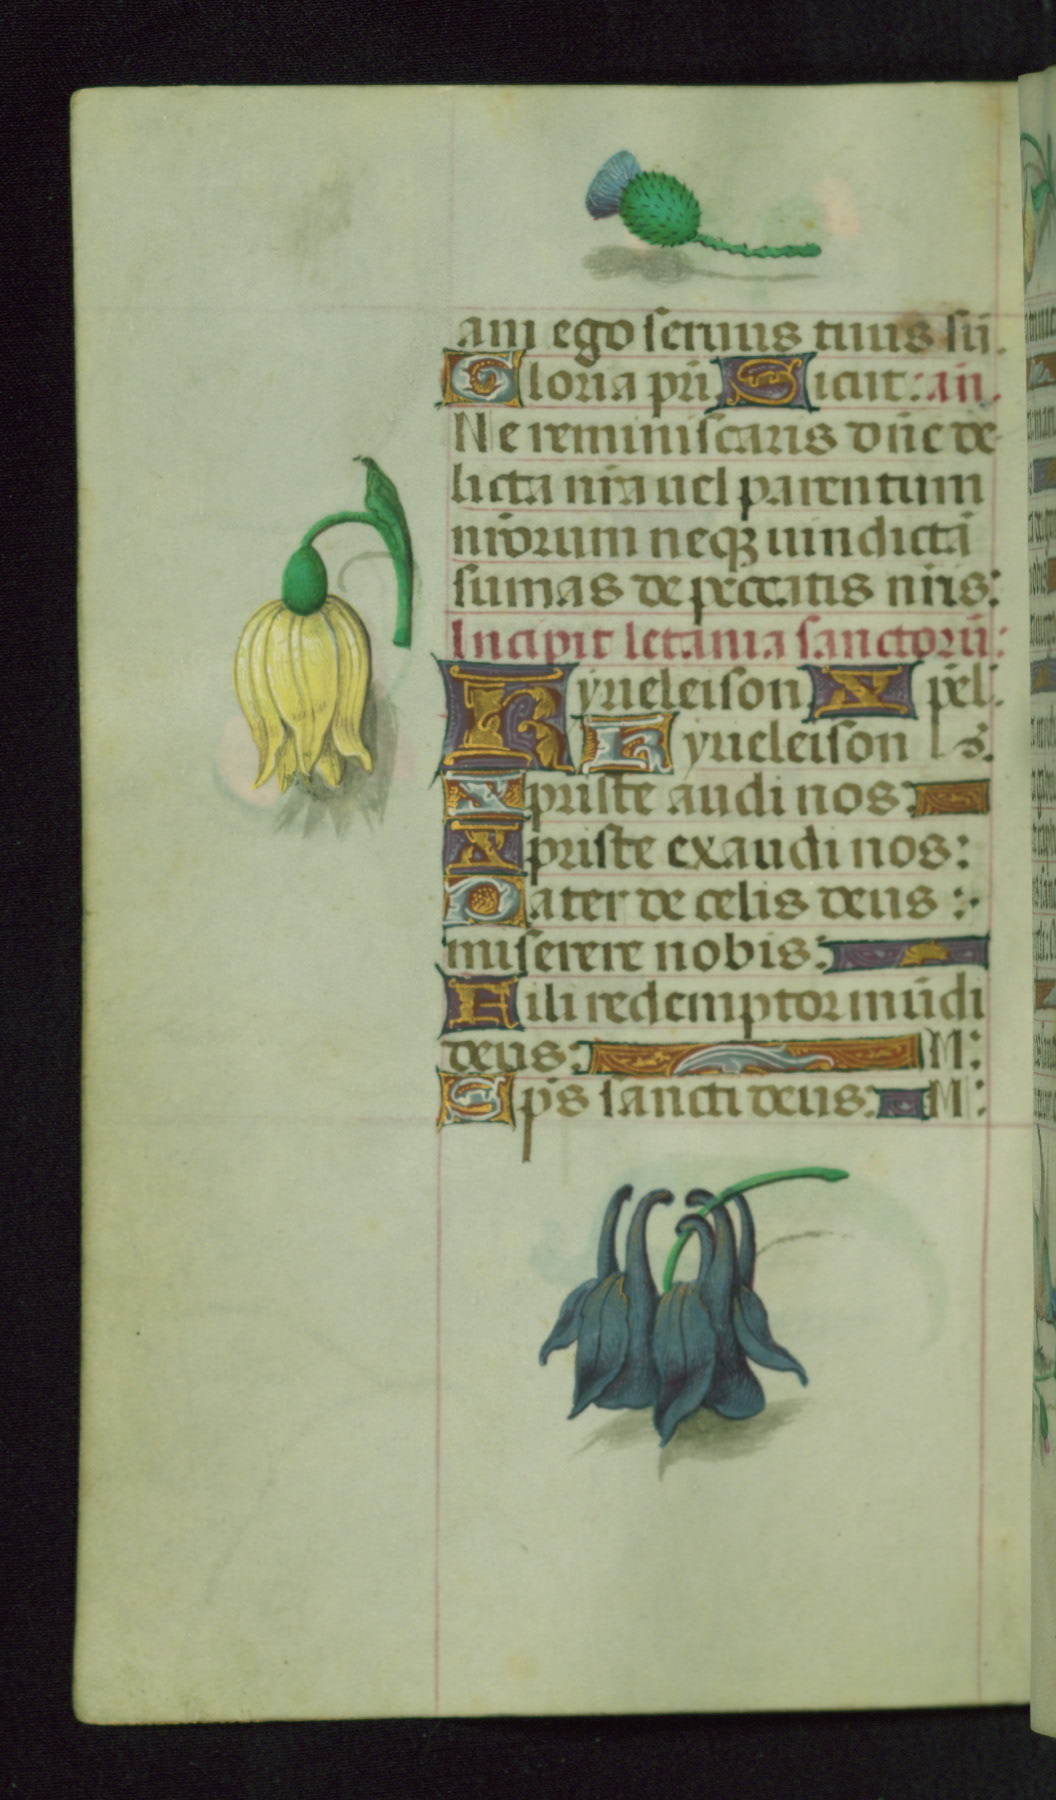 am ego seruus tuus sū.
Gloria pri. Sicut: an̄.
Ne reminiscaris dn̄e de
licta nr̄a uel parentum
nr̄orum neqꝫ uindictā
sumas de peccatis nr̄is:
Incipit letania sanctorū:
Kyrieleison Xp̄el.
Kyrieleison
Xpriste audi nos:
Xpriste exaudi nos:
Pater de celis deus:
miserere nobis:
Fili redemptor mūdi
deus: M:
Sp̄s sancti deus: M: